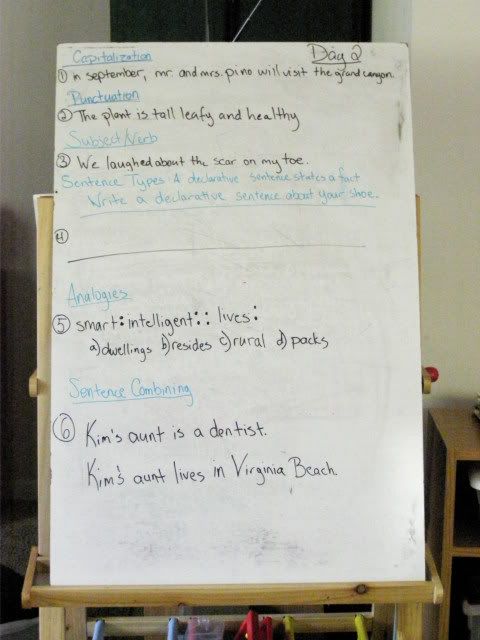 Capitalization Day 2
① in september, mr. and mrs. pino will visit the grand canyon.
Punctuation
② The plant is tall leafy and healthy
Subject/Verb
③ We laughed about the scar on my toe.
Sentence Types A declarative sentence states a fact
Write a declarative sentence about your shoe.
④
Analogies
⑤ smart:intelligent:: lives:
a) dwellings b) resides c) rural d) packs
Sentence Combining
⑥ Kim's aunt is a dentist.
Kim's aunt lives in Virginia Beach.